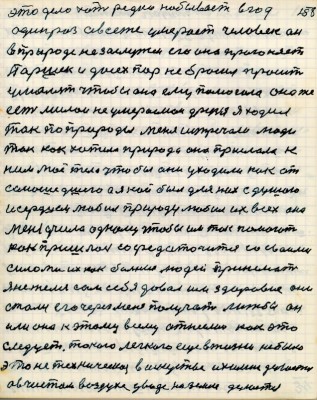 это дело хоть редко но бывает в год 158
один раз на свете умерает человек он
в природе не заслужен его она прогоняет
Паршек и до сех пор не бросил просит
умоляет чтобы она ему помогала она же
есть милой не умераемой друзья я ходил
так по природы меня встречали люди
так как хотела природа она прислала к
ним моё тело чтобы они уходили как от
сомошедшего а я кой был для них с душою
и сердцем любил природу любил их всех она
меня учила одному чтобы им так помогат
как пришлося сосредоточится со своими
силами их как больных людей принимат
я не жалел сам себя довал им здоровие они
стали его через меня получать мог бы он
или она к этому всему отнеслис как это
следует. такого легкого еще в жизни небыло
это не техническая в искустве и химии делается
а в чистом воздухе, в воде, на земле делается